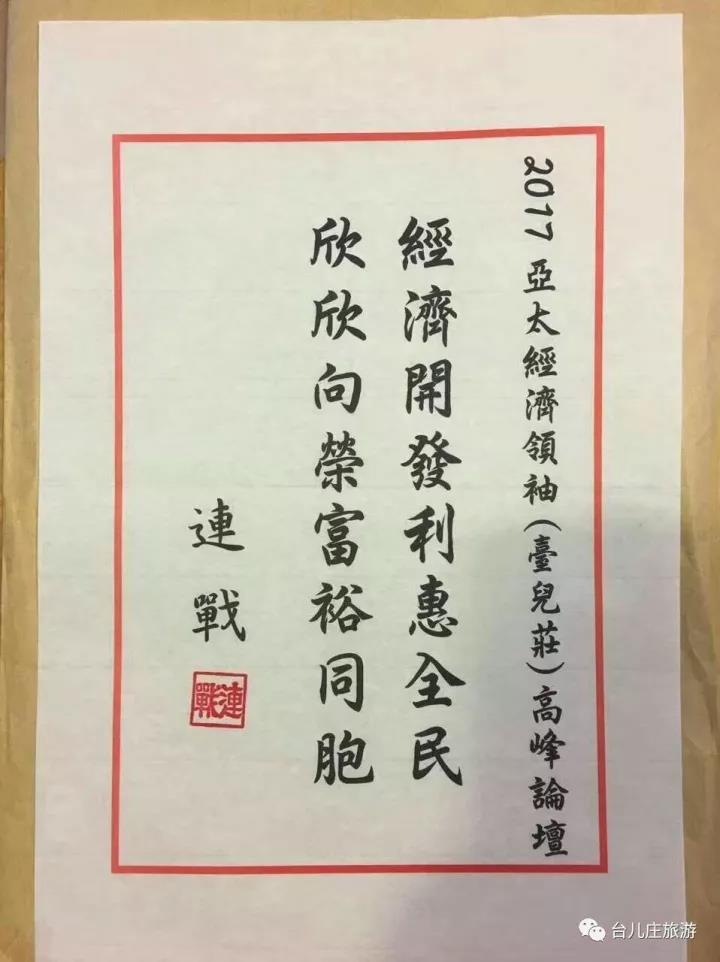 2017亞太經濟領袖(臺兒莊)高峰論壇
經濟開發利惠全民
欣欣向榮富裕同胞
連戰
連戰
台儿庄旅游